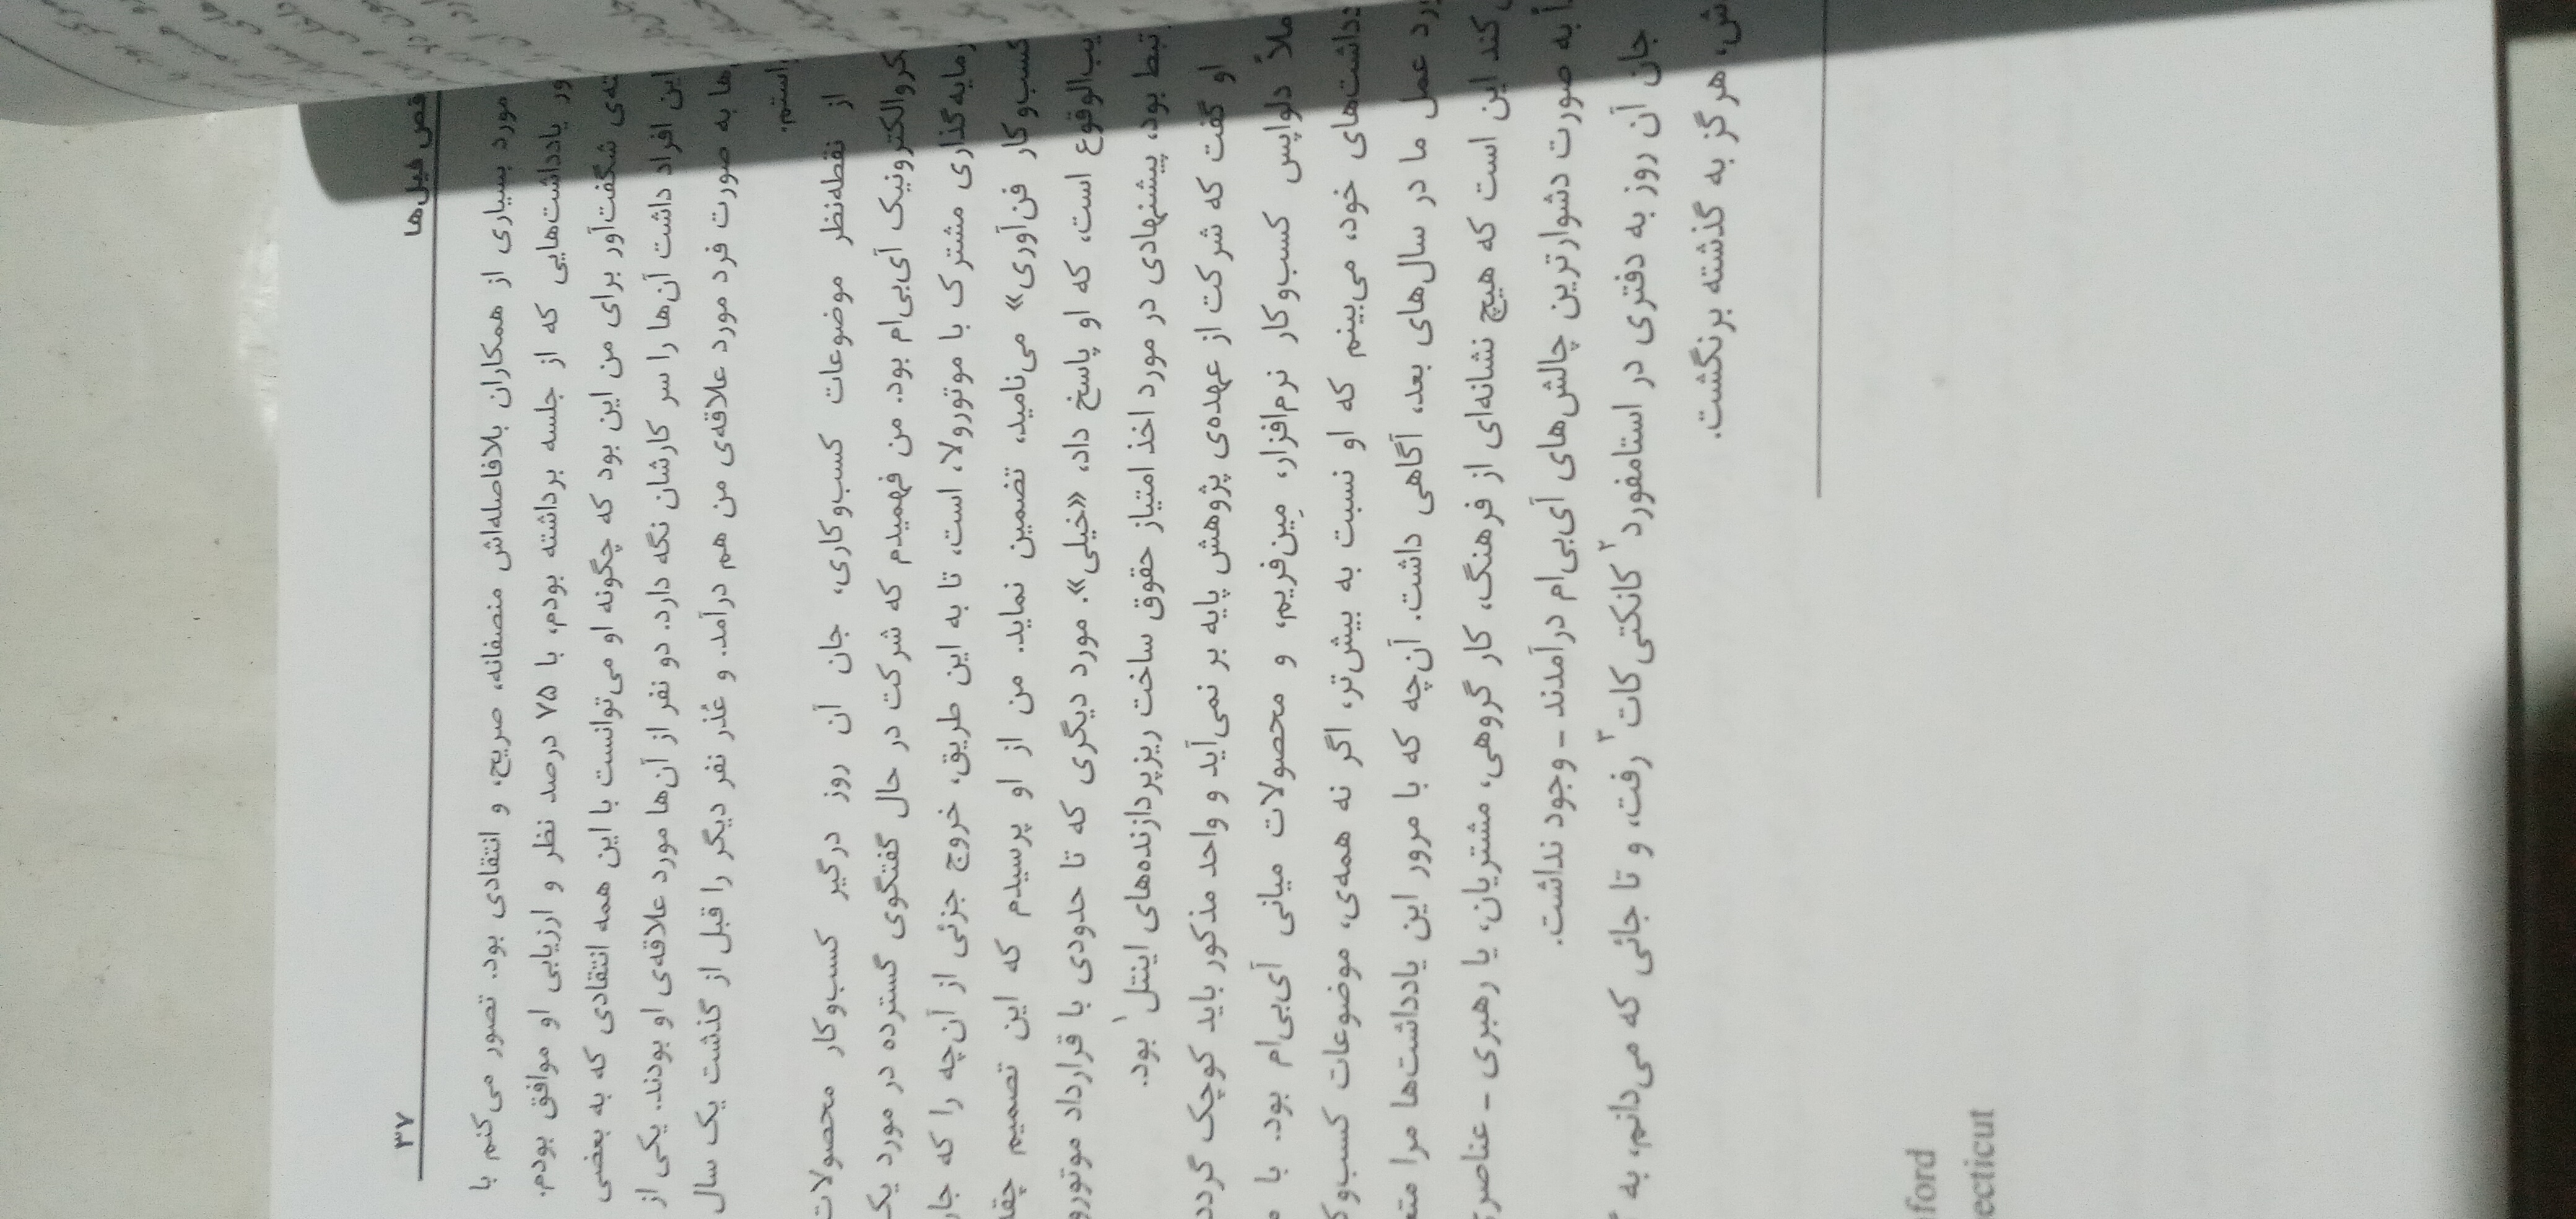 ۳۷ فیل‌ها
مورد بسیاری از همکاران بلافاصله‌اش منصفانه، صریح، و انتقادی بود. تصور می‌کنم با
یادداشت‌هایی که از جلسه برداشته بودم، با ۷۵ درصد نظر و ارزیابی او موافق بودم.
شگفت‌آور برای من این بود که چگونه او می‌توانست با این همه انتقادی که به بعضی
این افراد داشت آن‌ها را سر کارشان نگه دارد. دو نفر از آن‌ها مورد علاقه‌ی او بودند. یکی از
به صورت فرد مورد علاقه‌ی من هم درآمد. و عُذر نفر دیگر را قبل از گذشت یک سال
از نقطه‌نظر موضوعات کسب‌وکاری، جان آن روز درگیر کسب‌وکار محصولات
آی‌بی‌ام بود. من فهمیدم که شرکت در حال گفتگوی گسترده در مورد یک
مشترک با موتورولا، است، تا به این طریق، خروج جزئی از آن‌چه را که جان
کسب‌وکار فن‌آوری» می‌نامید، تضمین نماید. من از او پرسیدم که این تصمیم
است، که او پاسخ داد، «خیلی». مورد دیگری که تا حدودی با قرارداد
بود، پیشنهادی در مورد اخذ امتیاز حقوق ساخت ریزپردازنده‌های اینتل۱ بود.
او گفت که شرکت از عهده‌ی پژوهش پایه بر نمی‌آید و واحد مذکور باید کوچک گردد
دلواپس کسب‌وکار نرم‌افزار، مِین‌فریم، و محصولات میانی آی‌بی‌ام بود. با
خود، می‌بینم که او نسبت به بیش‌تر، اگر نه همه‌ی، موضوعات
عمل ما در سال‌های بعد، آگاهی داشت. آن‌چه که با مرور این یادداشت‌ها مرا
کند این است که هیچ نشانه‌ای از فرهنگ، کار گروهی، مشتریان، یا رهبری - عناصر
به صورت دشوارترین چالش‌های آی‌بی‌ام درآمدند - وجود نداشت.
جان آن روز به دفتری در استامفورد۲ کانکتی‌کات۳ رفت، و تا جائی که می‌دانم، به
هرگز به گذشته برنگشت.